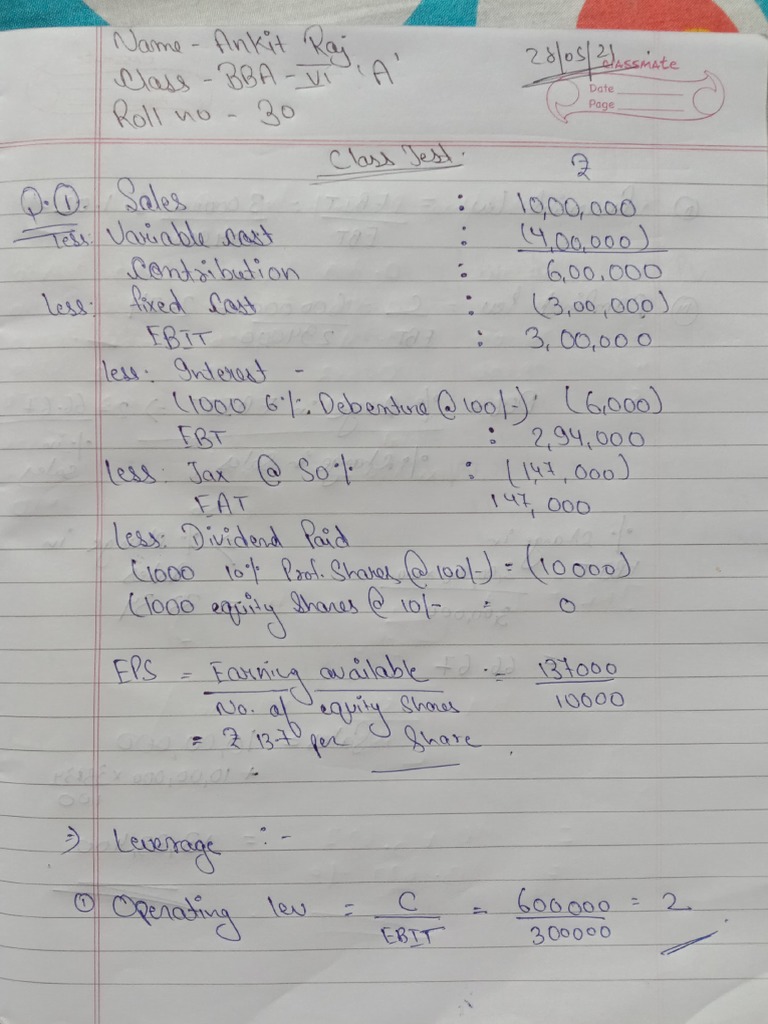 Name - Ankit Raj
28/05/21
classmate
Class - BBA - VI 'A'
Date
Page
Roll no - 30
Class Test.
₹
Q.① Sales : 10,00,000
less: Variable cost : (4,00,000)
Contribution : 6,00,000
less: fixed cost : (3,00,000)
EBIT : 3,00,000
less: Interest -
(1000 6%. Debenture @ 100/-) (6,000)
EBT : 2,94,000
less: Tax @ 50% : (147,000)
EAT 147,000
less: Dividend Paid
(1000 10% Pref. Shares @ 100/-) = (10000)
(1000 equity Shares @ 10/- = 0
EPS = Earning available = 137000
No. of equity Shares 10000
= ₹ 137 per Share
⇒ Leverage :-
① Operating lev = C = 600000 = 2
EBIT 300000